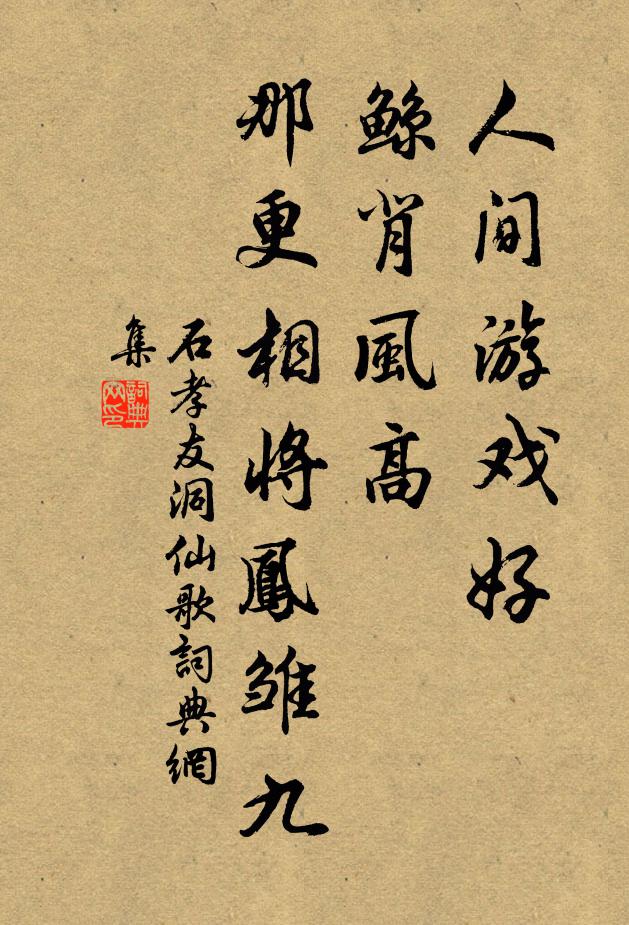 人间游戏好
鲸背風高
那更相將鳳雏九
石孝友洞仙歌詞典網
集
詞典
网印